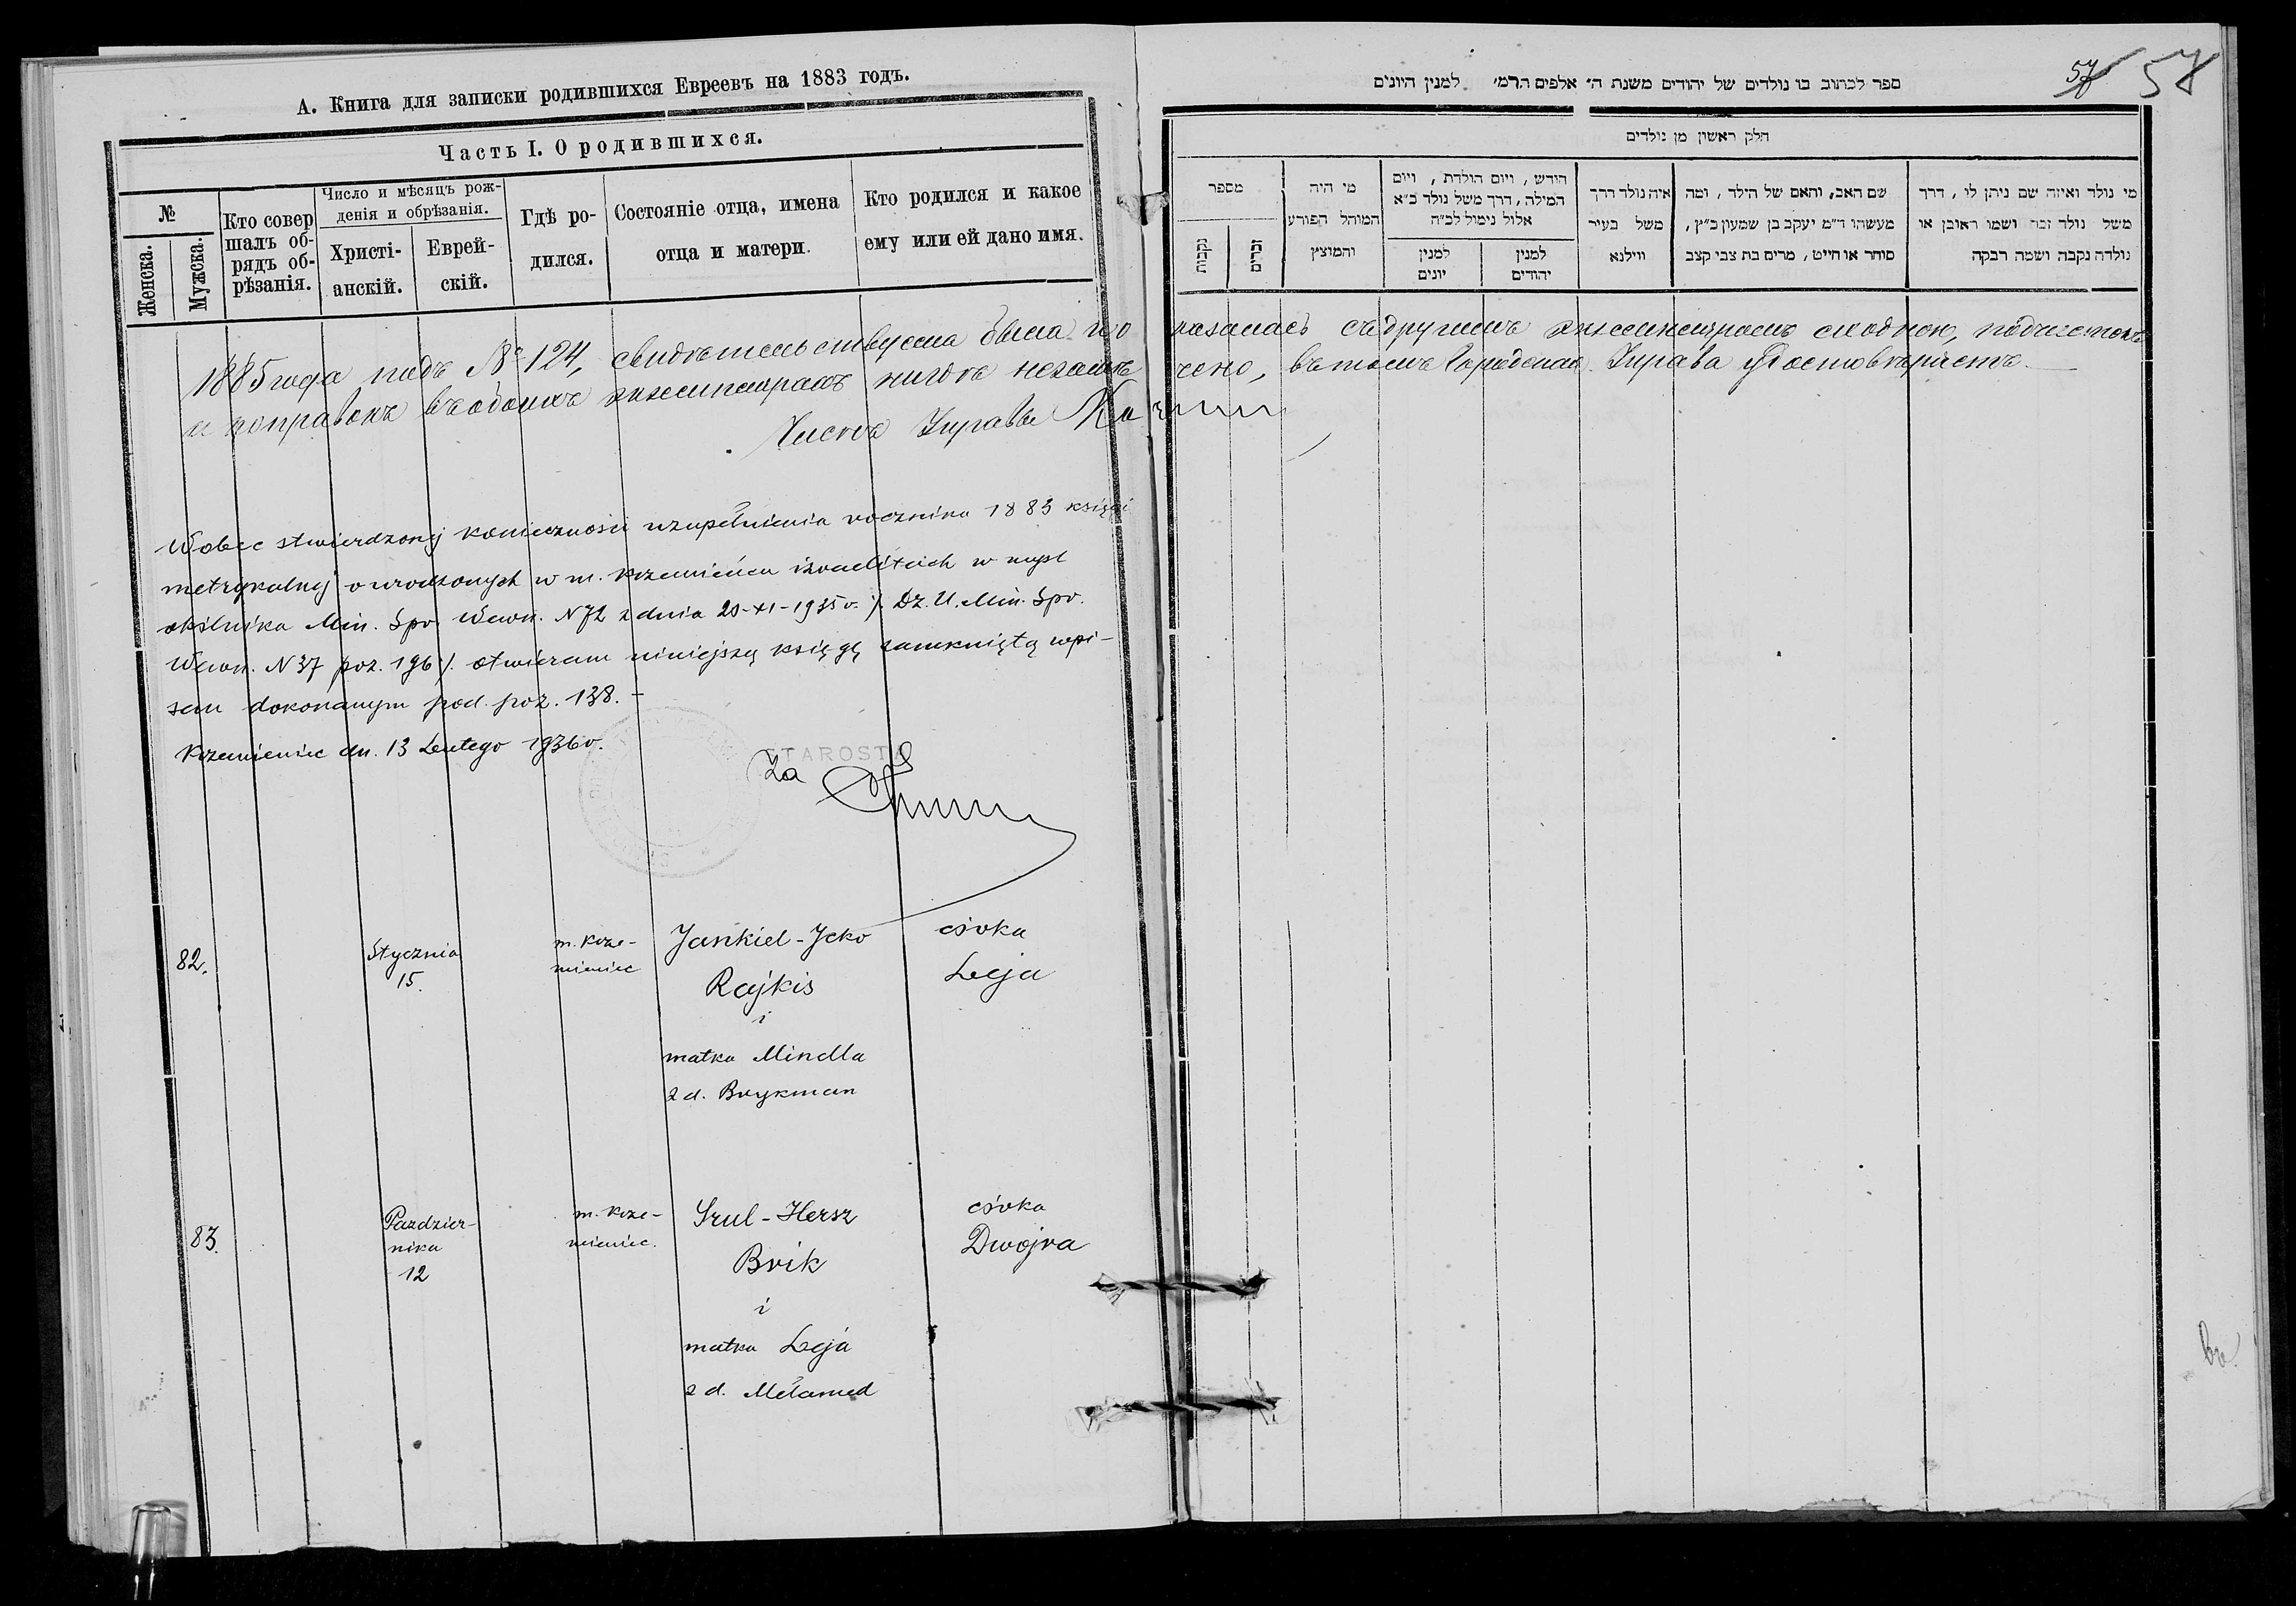 А. Книга для записки родившихся Евреевъ на 1883 годъ.
Часть I. О родившихся.
№
Женска.
Мужска.
Кто совер
шалъ об-
рядъ об-
рѣзанія.
Число и мѣсяцъ рож-
денія и обрѣзанія.
Христі-
анскій.
Еврей-
скій.
Гдѣ ро-
дился.
Состояніе отца, имена
отца и матери.
Кто родился и какое
ему или ей дано имя.
1885 года подъ № 124, свидѣтельствуема была и о
и поправокъ въ обоихъ экземплярахъ нигдѣ не замѣ
Членъ Управы
Wobec stwierdzonej konieczności uzupełnienia rocznika 1883 księgi
metrykalnej o urodzonych w m. Krzemieńcu izraelitach w myśl
okólnika Min. Spr. Wewn. N 72 z dnia 20-XI-1935 r. /. Dz. U. Min. Spr.
Wewn. N 37 poz. 196 /. otwieram niniejszą księgę zamkniętą wpi-
sem dokonanym pod poz. 138. -
Krzemieniec dn. 13 Lutego 1936 r.
STAROSTA
Za
82.
Stycznia
15.
m. Krze-
mieniec
Jankiel-Jcko
Rajkis
i
matka Mindla
z d. Brykman
córka
Leja
83.
Pazdzier-
nika
12
m. Krze-
mieniec.
Srul-Hersz
Brik
i
matka Leja
z d. Melamed
córka
Dwojra
57 58
ספר לכתוב בו נולדים של יהודים משנת ה׳ אלפים תרמ׳ למנין היונים
חלק ראשון מן נולדים
מספר
נקבות
זכרים
מי היה
המוהל הפורע
והמוצץ
חודש, ויום הולדת, ויום
המילה, דרך משל נולד כ״א
אלול נימול לכ״ה
למנין
יונים
למנין
יהודים
איה נולד דרך
משל בעיר
ווילנא
שם האב, והאם של הילד, ומה
מעשהו ד״מ יעקב בן שמעון כ״ץ,
סוחר או חייט, מרים בת צבי קצב
מי נולד ואיזה שם ניתן לו, דרך
משל נולד זכר ושמו ראובן או
נולדה נקבה ושמה רבקה
казалась съ другимъ экземпляромъ сходною, подчистокъ
чено, въ томъ Городская Управа удостовѣряетъ.